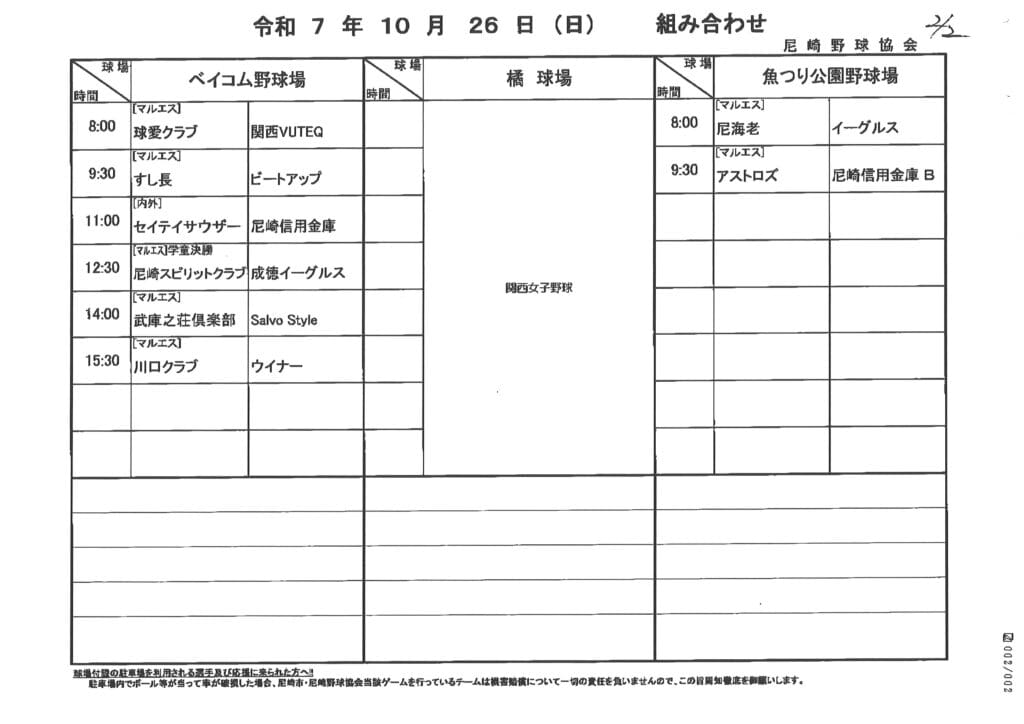 令和 7 年 10 月 26 日 (日) 組み合わせ
2/2
尼崎野球協会
球場 時間 ベイコム野球場 球場 時間 橘 球場 球場 時間 魚つり公園野球場
8:00 [マルエス] 球愛クラブ 関西VUTEQ
9:30 [マルエス] すし長 ビートアップ
11:00 [内外] セイテイサウザー 尼崎信用金庫
12:30 [マルエス]学童決勝 尼崎スピリットクラブ 成徳イーグルス
14:00 [マルエス] 武庫之荘倶楽部 Salvo Style
15:30 [マルエス] 川口クラブ ウイナー
関西女子野球
8:00 [マルエス] 尼海老 イーグルス
9:30 [マルエス] アストロズ 尼崎信用金庫 B
球場付設の駐車場を利用される選手及び応援に来られた方へ!!
駐車場内でボール等が当って車が破損した場合、尼崎市・尼崎野球協会当該ゲームを行っているチームは損害賠償について一切の責任を負いませんので、この旨周知徹底を御願いします。
002/002